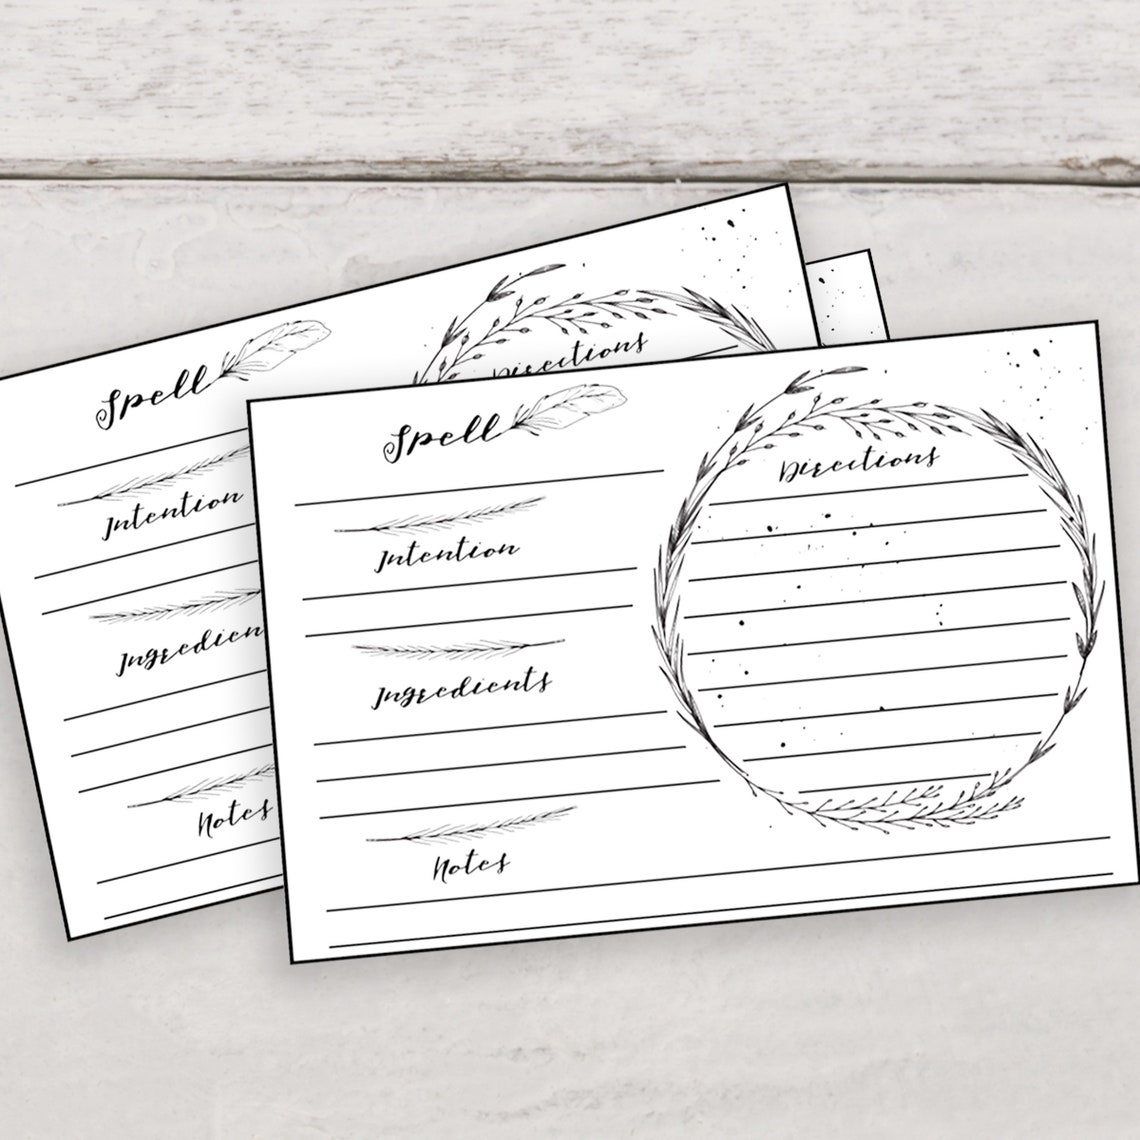 Spell
Intention
Ingredients
Notes
Directions
Spell
Directions
Intention
Ingredien
Notes